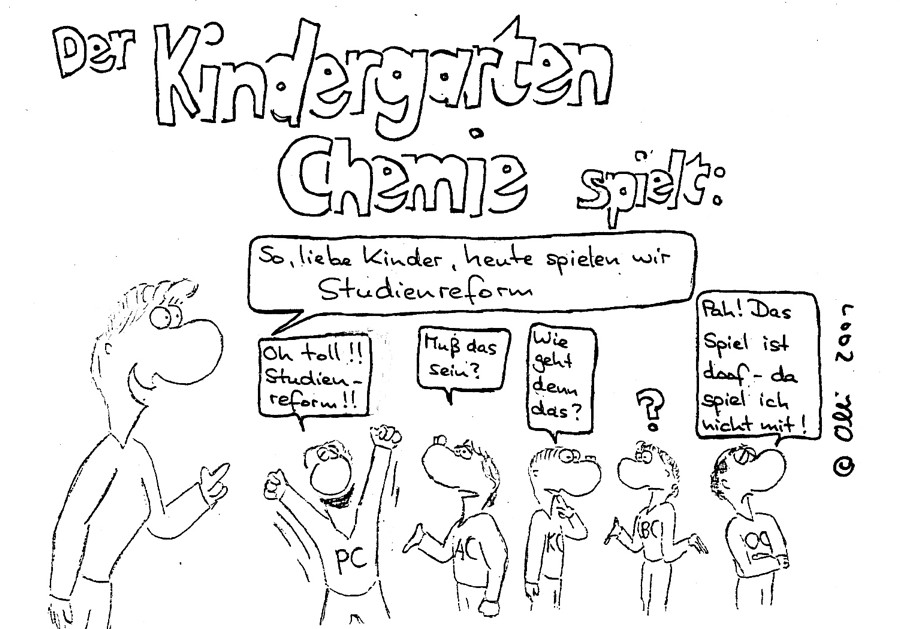 Der Kindergarten
Chemie spielt:
So, liebe Kinder, heute spielen wir
Studienreform
Oh toll!!
Studien-
reform!!
Muß das
sein?
Wie
geht
denn
das?
?
Pah! Das
Spiel ist
doof - da
spiel ich
nicht mit!
PC
AC
KC
BC
OC
© Olli 2001